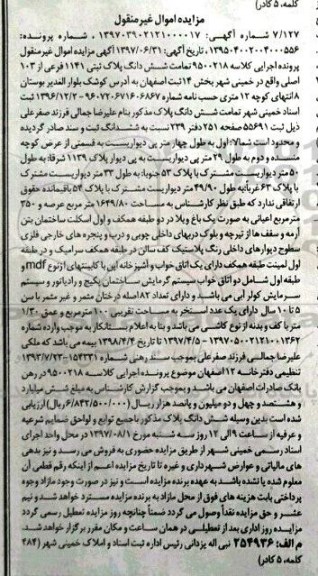 کلمه، ۵ کادر)
مزایده اموال غیرمنقول
۷/۱۲۷ شماره آگهی: ۱۳۹۷۰۳۹۰۲۱۲۱۰۰۰۰۱۷ ، شماره پرونده:
۱۳۹۵۰۴۰۰۲۰۰۴۰۰۰۵۵۶ ، تاریخ آگهی: ۱۳۹۷/۰۶/۳۱ آگهی مزایده اموال غیرمنقول
پرونده اجرایی کلاسه ۹۵۰۰۲۱۸ تمامت شش دانگ پلاک ثبتی ۱۱۴۱ فرعی از ۱۰۳
اصلی واقع در خمینی شهر بخش ۱۴ ثبت اصفهان به آدرس کوشک بلوار الغدیر بوستان
۸ انتهای کوچه ۱۲ متری حسب نامه شماره ۶۸۶۷-۶۷۱۶-۹۶۰۷۲ ۱۳۹۶/۱۲/۲ ثبت
اسناد خمینی شهر تمامت شش دانگ پلاک مذکور بنام علیرضا جمالی فرزند صفرعلی
ذیل ثبت ۵۵۶۹۱ صفحه ۲۵۱ دفتر ۲۳۹ نسبت به ششدانگ ثبت و سند صادر گردیده
و محدود است شمالا: اول به طول چهار متر پی دیواریست به قسمتی از عرض کوچه
منده و دوم به طول ۲۹ متر پی دیواریست به پی دیوار پلاک ۱۱۳۹ شرقا: به طول
۵۰ متر دیواریست مشترک با پلاک ۵۳ جنوبا: به طول ۳۳ متر دیواریست مشترک
با پلاک ۶۳ غربا: به طول ۴۹/۹۰ متر دیواریست مشترک با پلاک ۵۴ باقیمانده حقوق
ارتفاقی ندارد که طبق نظر کارشناس به مساحت ۱۶۴۹/۸۰ متر مربع عرصه و ۳۵۰
مترمربع اعیانی به صورت یک باغ ویلا در دو طبقه همکف و اول اسکلت ساختمان بتن
آرمه و سقف ها از تیرچه و بلوک دربهای داخلی چوبی و درب و پنجره های خارجی فلزی
سطوح دیوارهای داخلی رنگ پلاستیک کف سالن در طبقه همکف سرامیک و در طبقه
اول لمینت طبقه همکف دارای یک اتاق خواب و آشپزخانه اپن با کابینتهای از نوع mdf و
طبقه اول شامل دو اتاق خواب سیستم گرمایش ساختمان پکیج و رادیاتور و سیستم
سرمایش کولر آبی می باشد و دارای تعداد ۸۲ اصله درختان مثمر و غیر مثمر با سن
۵ تا ۱۰ سال دارای یک عدد استخر به مساحت تقریبی ۱۰۰ مترمربع و عمق ۱/۳۰
متر با کف و بدنه از نوع کاشی می باشد و بنا به اعلام بستانکار به موجب وارده شماره
۱۳۹۷۰۵۰۰۲۱۲۱۰۰۱۳۶۲ - ۱۳۹۷/۴/۵ تا تاریخ ۱۳۹۸/۴/۴ بیمه می باشد که ملکی
علیرضا جمالی فرزند صفرعلی بموجب سند رهنی شماره ۱۵۴۳۳۱-۱۳۹۳/۷/۲۲
تنظیمی دفترخانه ۱۲ اصفهان موضوع پرونده اجرایی کلاسه ۹۵۰۰۲۱۸ در رهن
بانک صادرات اصفهان می باشد و بموجب گزارش کارشناس به مبلغ شش میلیارد
و هشتصد و چهل و دو میلیون و پانصد هزار ریال (۶/۸۴۲/۵۰۰/۰۰۰ ریال) ارزیابی
شده است بدین وسیله شش دانگ پلاک مذکور با جمیع توابع و لواحق ضمایم شرعیه
و عرفیه از ساعت ۹ الی ۱۲ روز سه شنبه مورخ ۱۳۹۷/۰۸/۰۱ در محل واحد اجرای
اسناد رسمی خمینی شهر از طریق مزایده حضوری به فروش می رسد و نیز بدهی
های مالیاتی و عوارض شهرداری و غیره تا تاریخ مزایده اعم از اینکه رقم قطعی آن
معلوم شده یا نشده باشد به عهده برنده مزایده است و نیز در صورت وجود مازاد وجوه
پرداختی بابت هزینه های فوق از محل مازاد به برنده مزایده مسترد خواهد شد و نیم
عشر و حق مزایده نقدا وصول می گردد ضمنا چنانچه روز مزایده تعطیل رسمی گردد
مزایده روز اداری بعد از تعطیلی در همان ساعت و مکان مقرر برگزار خواهد شد.
م الف: ۲۵۴۹۳۶ نبی اله یزدانی رئیس اداره ثبت اسناد و املاک خمینی شهر (۴۸۴
کلمه، ۵ کادر)